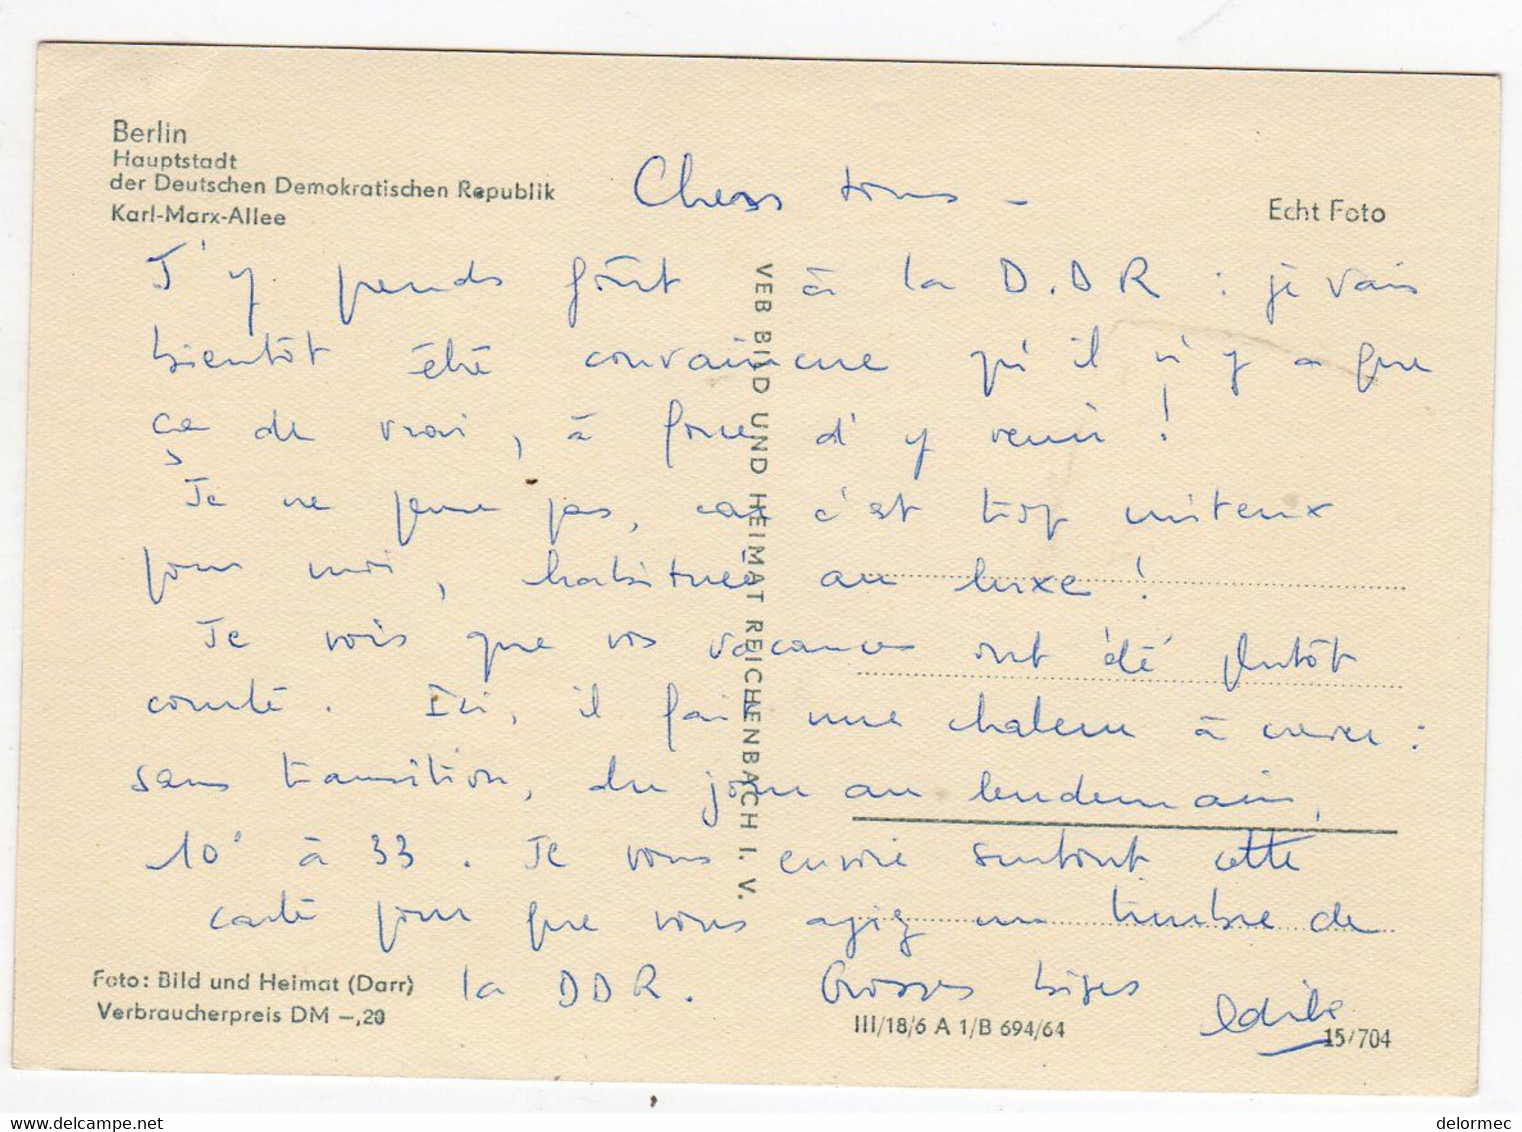 Berlin
Hauptstadt
der Deutschen Demokratischen Republik
Karl-Marx-Allee
Echt Foto
Chers tous –
J'y prends goût à la D.D R : je vais
bientôt être convaincue qu'il n'y a que
ça de vrai, à force d'y venir !
Je ne pense pas, car c'est trop miteux
pour moi, habituée au luxe !
Je vois que vos vacances ont été plutôt
. Ici, il fait une chaleur à crever :
sans transition, du jour au lendemain,
10° à 33. Je vous envoie surtout cette
carte pour que vous ayiez un timbre de
la DDR. Grosses bises
VEB BILD UND HEIMAT REICHENBACH I. V.
Foto: Bild und Heimat (Darr)
Verbraucherpreis DM –,20
III/18/6 A 1/B 694/64
15/704
delormec